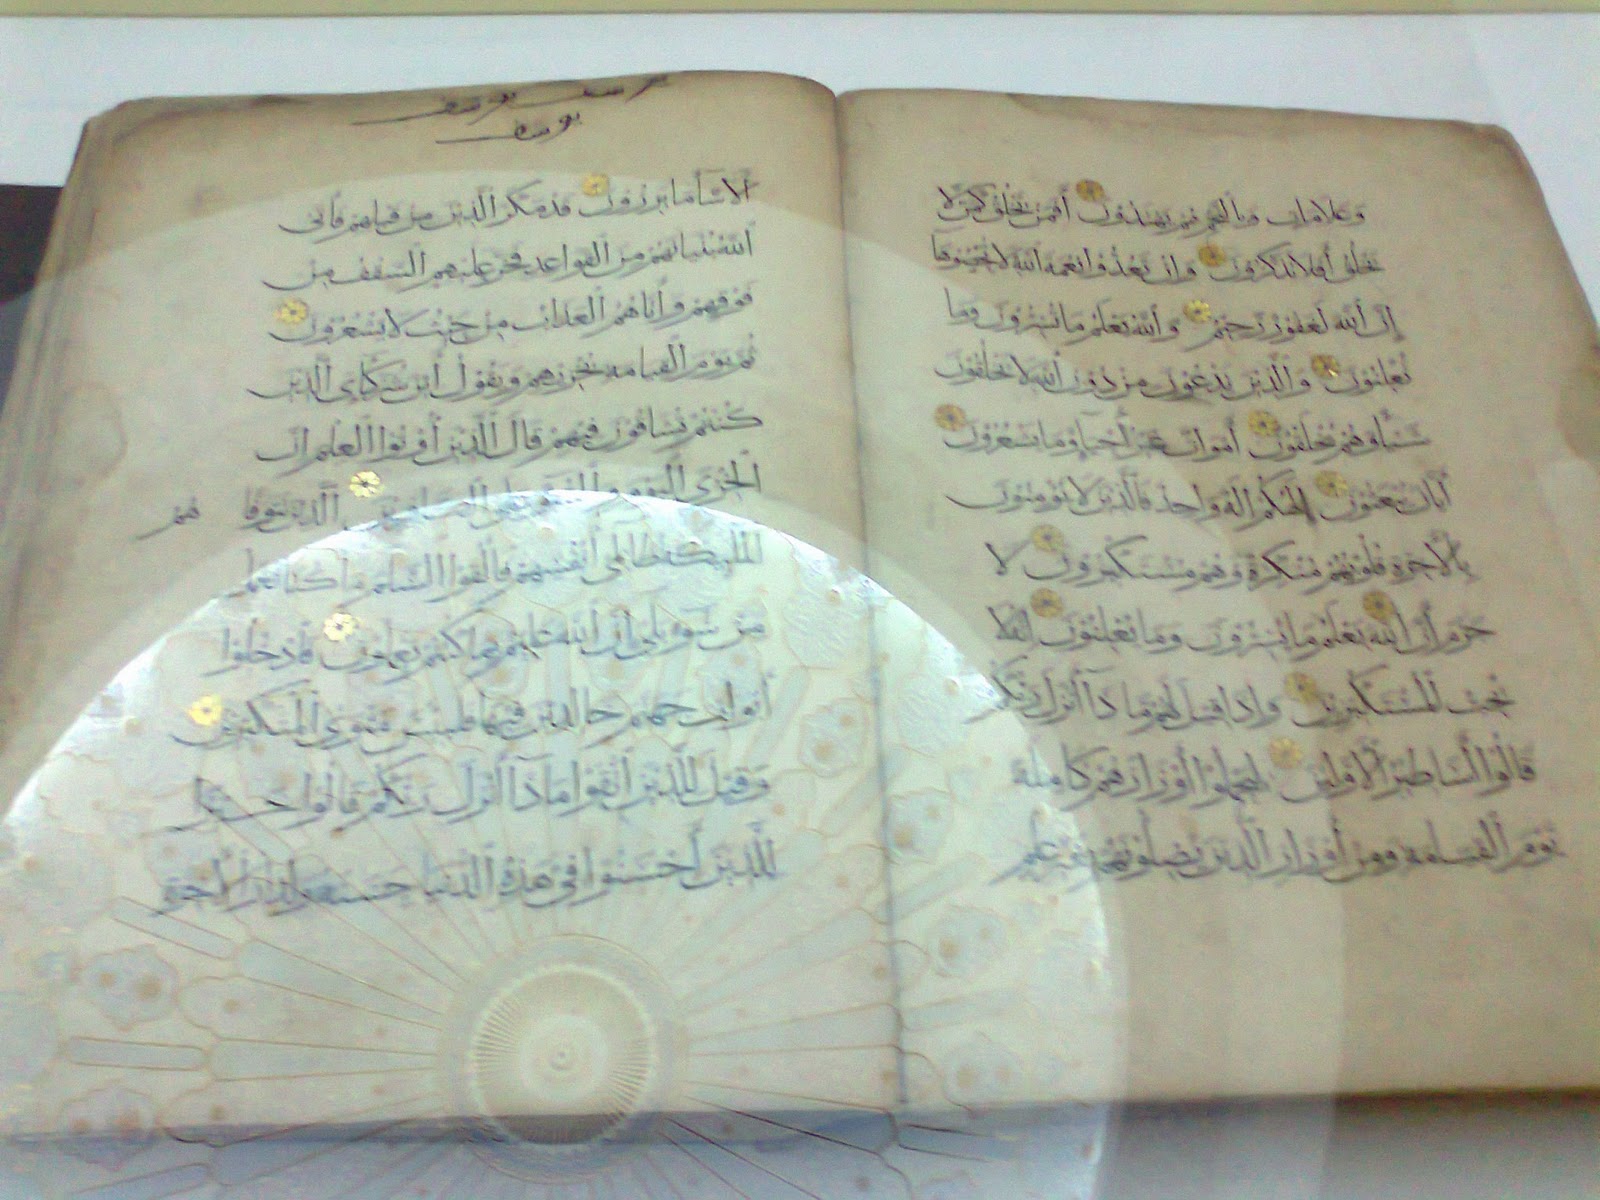 وعلامات وبالنجم هم يهتدون أفمن يخلق كمن لا
يخلق أفلا تذكرون وإن تعدوا نعمة الله لا تحصوها
إن الله لغفور رحيم والله يعلم ما تسرون وما
تعلنون والذين يدعون من دون الله لا يخلقون
شيئا وهم يخلقون أموات غير أحياء وما يشعرون
أيان يبعثون إلهكم إله واحد فالذين لا يؤمنون
بالآخرة قلوبهم منكرة وهم مستكبرون لا
جرم أن الله يعلم ما يسرون وما يعلنون إنه لا
يحب المستكبرين وإذا قيل لهم ماذا أنزل ربكم
قالوا أساطير الأولين ليحملوا أوزارهم كاملة
يوم القيامة ومن أوزار الذين يضلونهم بغير علم
يوسف
يوسف
ألا ساء ما يزرون قد مكر الذين من قبلهم فأتى
الله بنيانهم من القواعد فخر عليهم السقف من
فوقهم وأتاهم العذاب من حيث لا يشعرون
ثم يوم القيامة يخزيهم ويقول أين شركاي الذين
كنتم تشاقون فيهم قال الذين أوتوا العلم إن
الخزي اليوم والسوء على الكافرين الذين تتوفا هم
الملايكة ظالمي أنفسهم فألقوا السلم ما كنا نعمل
من سوء بلى إن الله عليم بما كنتم تعملون فادخلوا
أبواب جهنم خالدين فيها فلبئس مثوى المتكبرين
وقيل للذين اتقوا ماذا أنزل ربكم قالوا خيرا
للذين أحسنوا في هذه الدنيا حسنة ولدار الآخرة